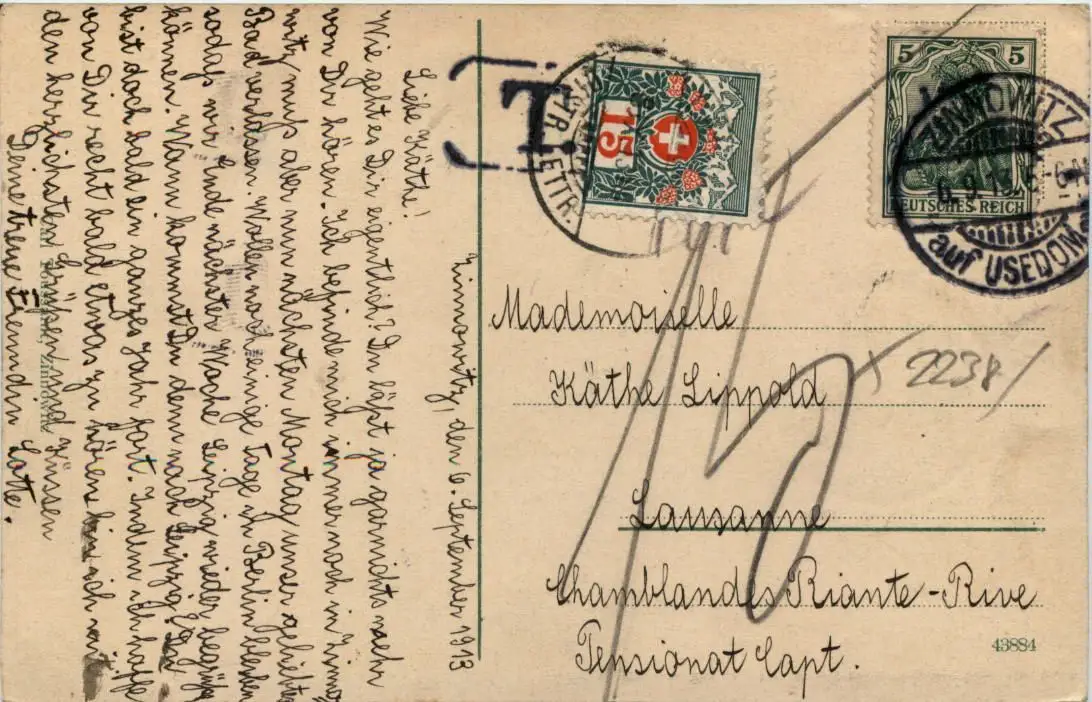 Zinnowitz, den 6. September 1913
Liebe Käthe!
Wie geht es Dir eigentlich? Du läßt ja garnichts mehr
von Dir hören. Ich befinde mich immer noch in Zinno-
witz, muß aber nun nächsten Montag unser geliebtes
Bad verlassen. Wollen noch einige Tage in Berlin bleiben
sodaß wir Ende nächster Woche Leipzig wieder begrüß
können. Wann kommst Du denn nach Leipzig? Du
bist doch bald ein ganzes Jahr fort. Indem ich hoffe
von Dir recht bald etwas zu hören bin ich mit
den herzlichsten Grüßen und Küssen
Deine treue Freundin Lotte.
T.
15
LETTR.
5 5
DEUTSCHES REICH
ZINNOWITZ
6.9.13. 5-6N
auf USEDOM
Mademoiselle
Käthe Lippold
2238
Lausanne
Chamblandes Riante-Rive
Pensionat Capt.
15
43884